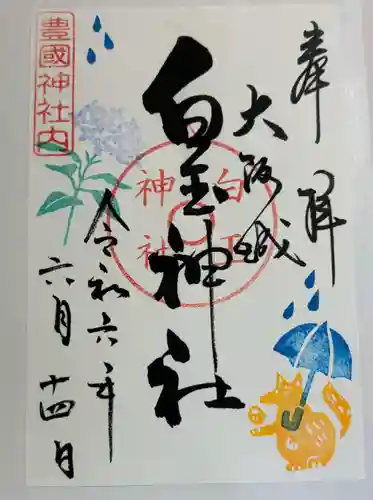 奉拝
大阪城
白玉神社
令和六年
六月十四日
豊國神社内
白玉神社